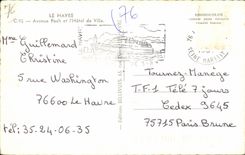 LE HAVRE
Avenue Foch et l'Hôtel de Ville.
76
Mme Guillemard
Christine
5 rue Washington
76600 Le Havre
Tél: 35-24-06-35
Tournez-Manège
T.F.1 Télé 7 jours
Cedex 9645
75715 Paris Brune